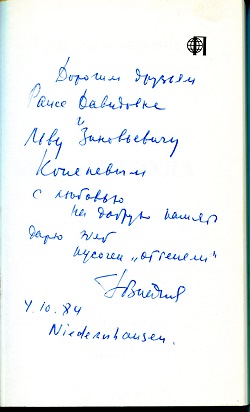 Дорогим друзьям
Раисе Давидовне
и
Льву Зиновьевичу
Копелевым
с любовью
на добрую память
дарю
кусочек „оттепели“
4.10.84
Niedernhausen.